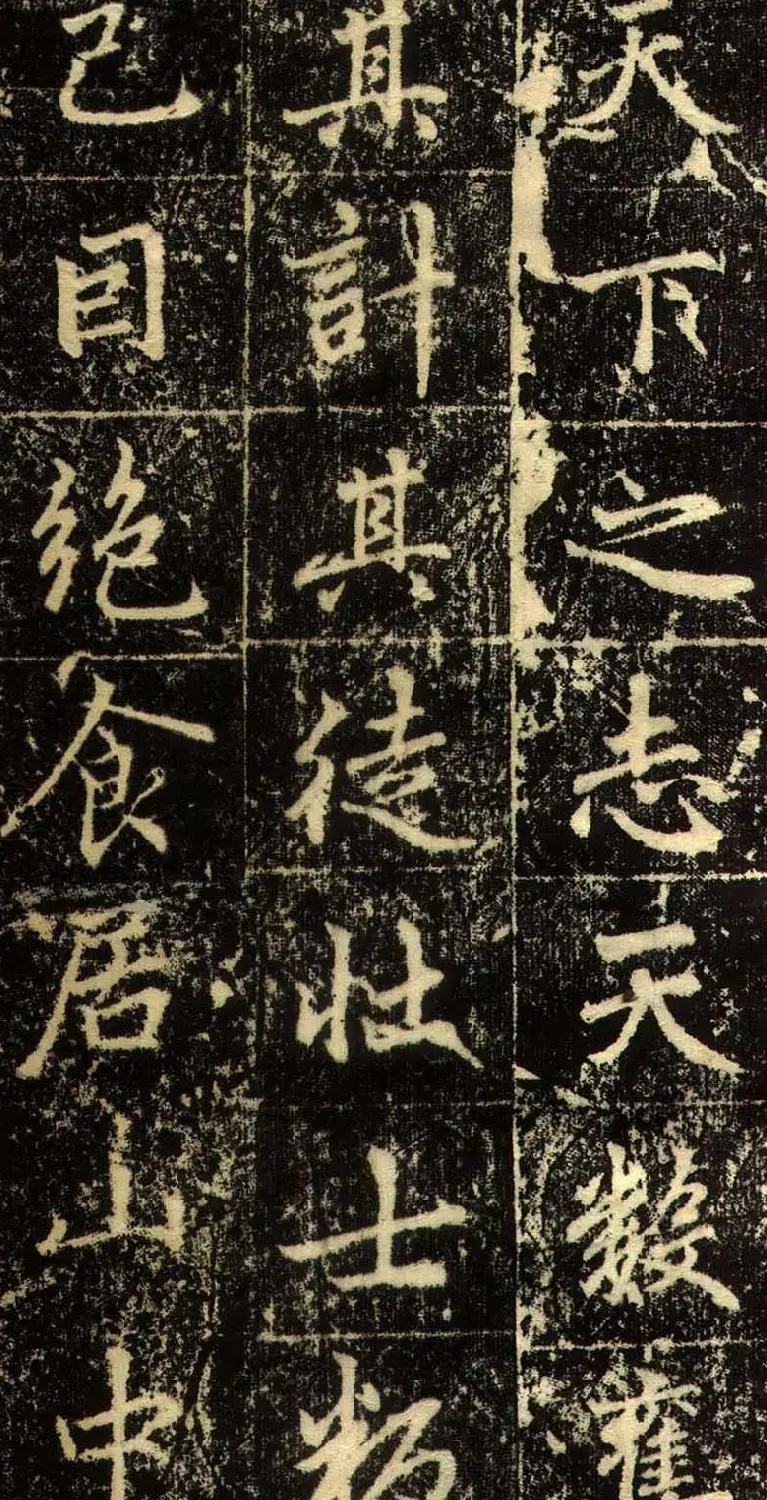 天下之志天數
其計其徒壯士
己目絕食居山中